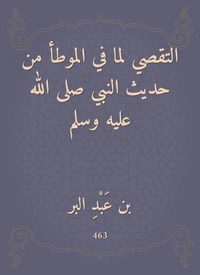 التقصي لما في الموطأ من
حديث النبي صلى الله
عليه وسلم
بن عَبْدِ البر
463